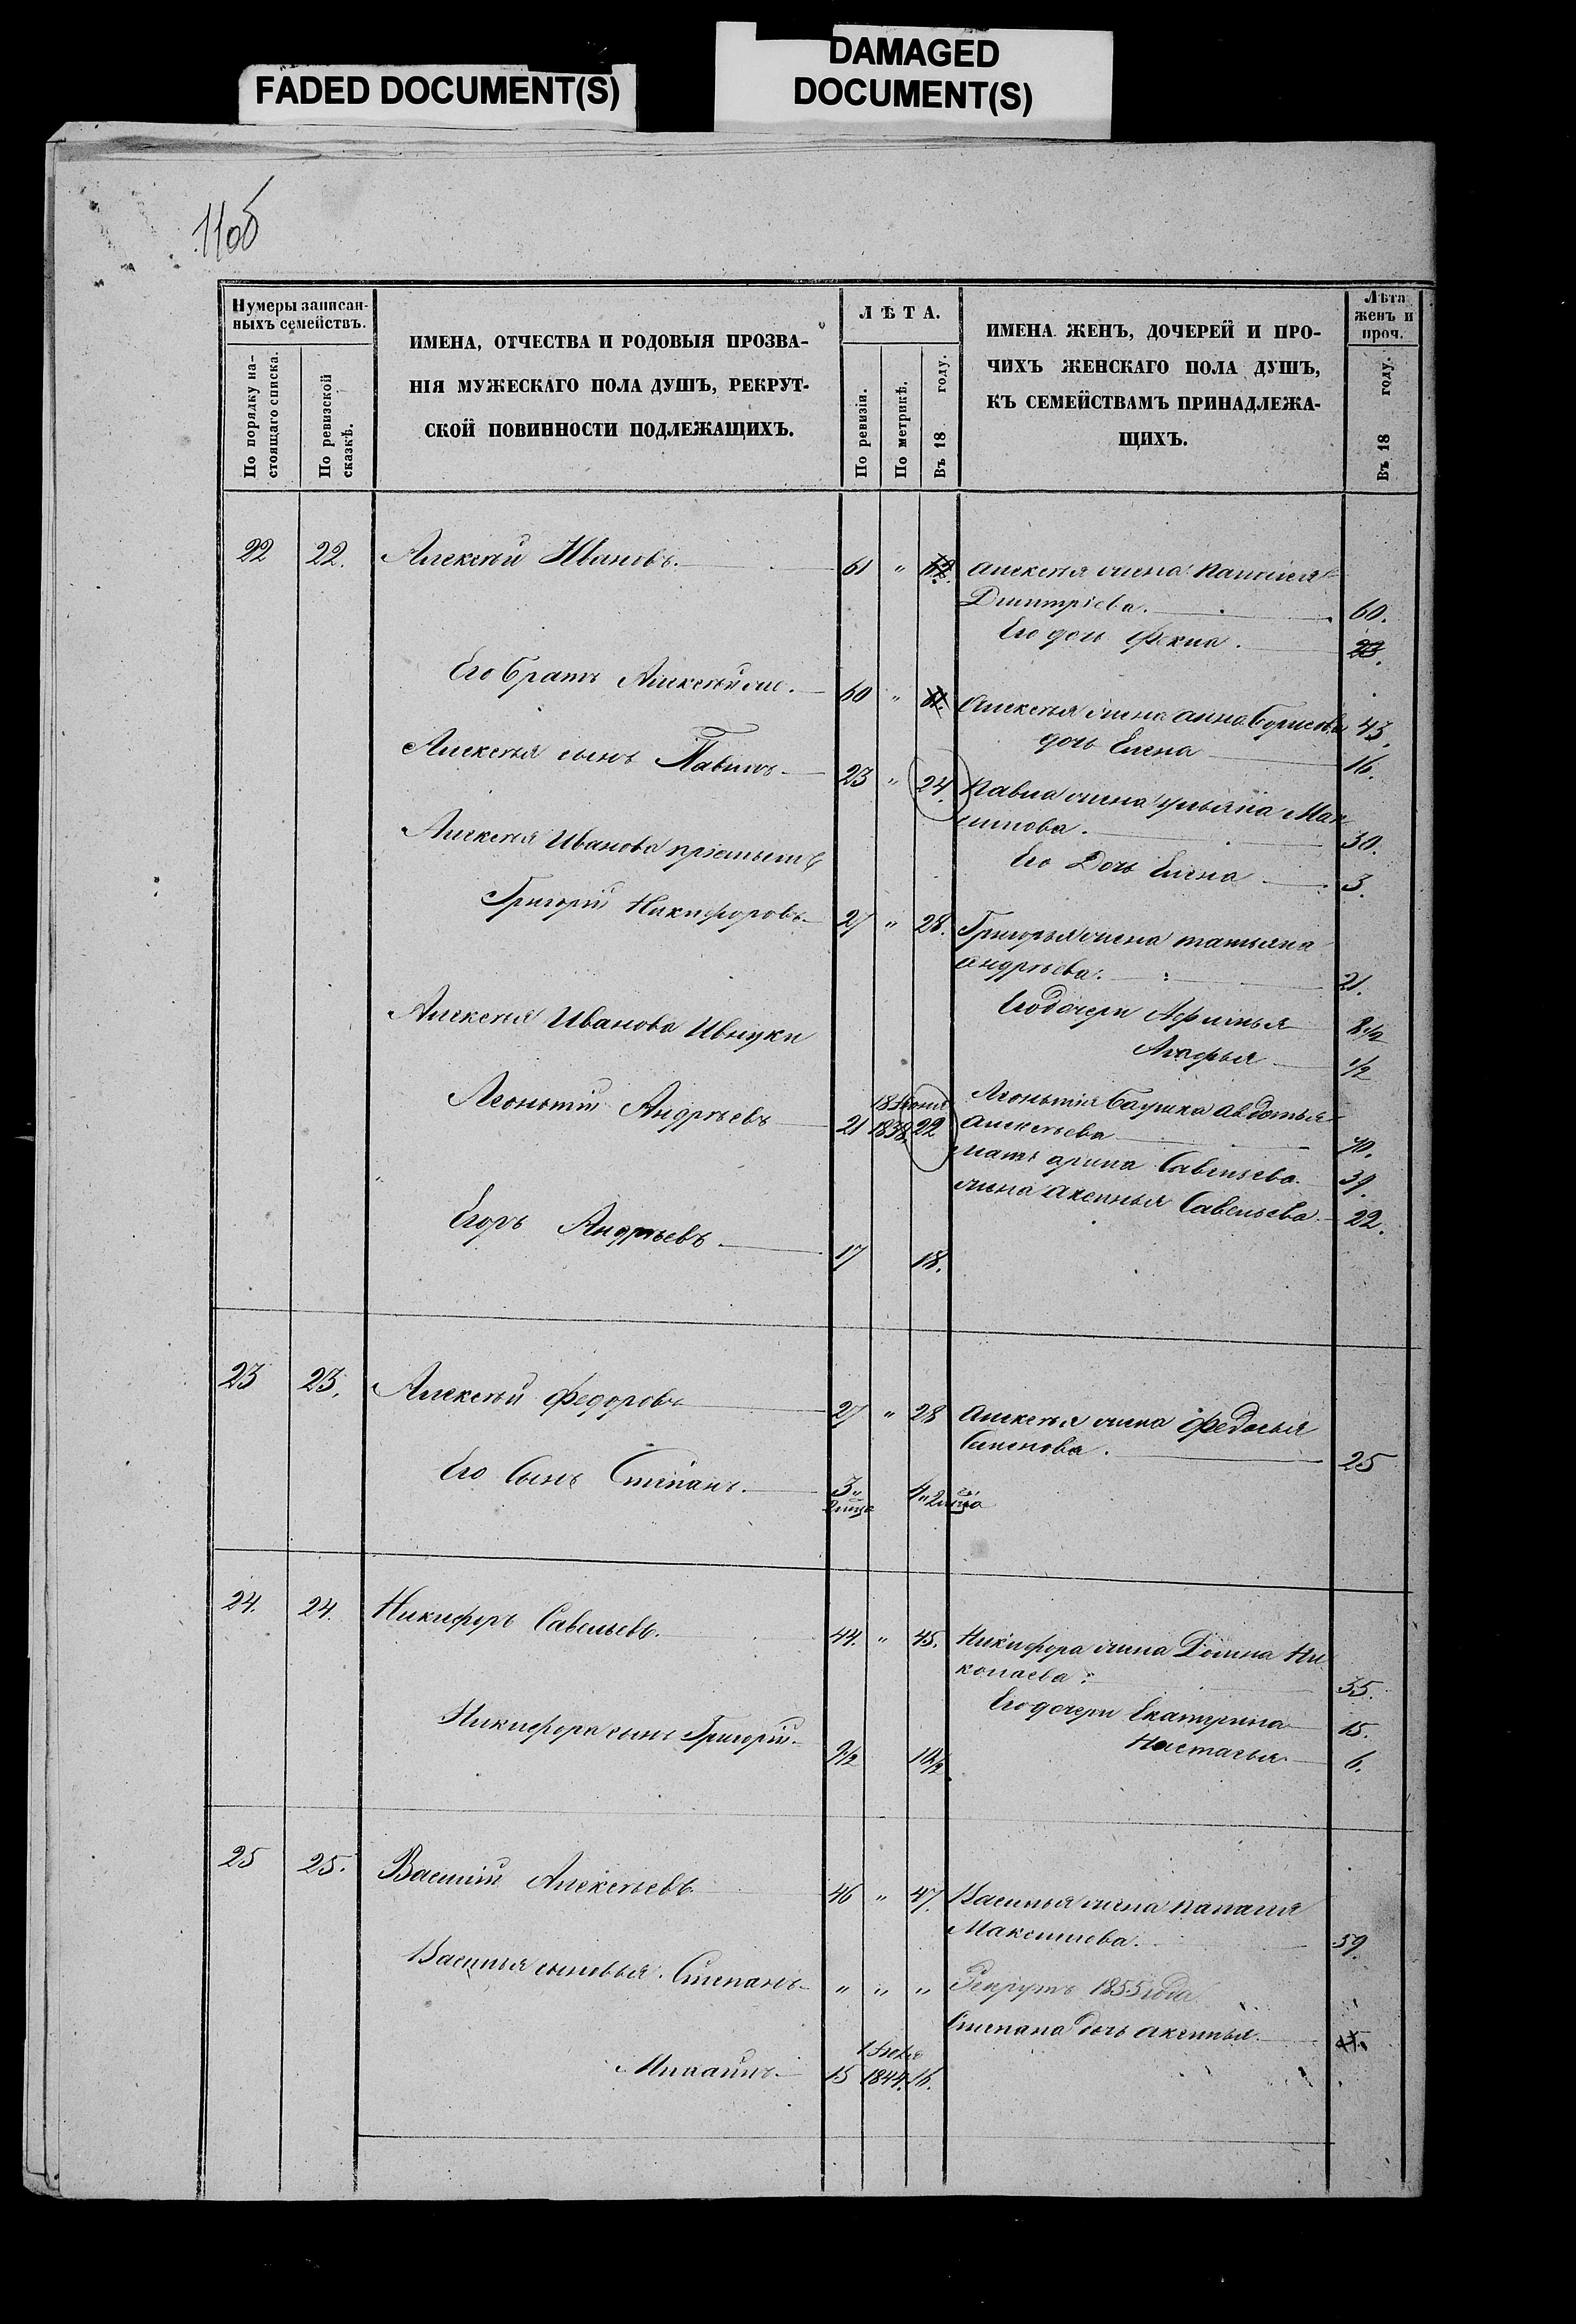 FADED DOCUMENT(S)
DAMAGED
DOCUMENT(S)
11об
Нумеры записан-
ныхъ семействъ.
По порядку на-
стоящаго списка.
По ревизской
сказкѣ.
ИМЕНА, ОТЧЕСТВА И РОДОВЫЯ ПРОЗВА-
НІЯ МУЖЕСКАГО ПОЛА ДУШЪ, РЕКРУТ-
СКОЙ ПОВИННОСТИ ПОДЛЕЖАЩИХЪ.
ЛѢТА.
По ревизіи.
По метрикѣ.
Въ 18 году.
ИМЕНА ЖЕНЪ, ДОЧЕРЕЙ И ПРО-
ЧИХЪ ЖЕНСКАГО ПОЛА ДУШЪ,
КЪ СЕМЕЙСТВАМЪ ПРИНАДЛЕЖА-
ЩИХЪ.
Лѣта
женъ и
проч.
Въ 18 году.
22 22. Алексѣй Ивановъ. 61 " 62. Алексѣя жена
Дмитріева. 60.
Его дочь Фекла. 23.
Его братъ Алексѣй же. 60 " 61. Алексѣя жена анна Борисова 43.
дочь Елена 16.
Алексѣя сынъ Павилъ 23 " 24. Павла жена ульяна Мак
симова. 30.
Алексѣя Иванова пріемышъ
Его Дочь Елена 3.
Григорій Никифоровъ 27 " 28. Григорья жена татьяна
андрѣева. 21.
Его дочери Афимья 8 1/2
Алексѣя Иванова Внуки
Агафья 1/2
Леоньтій Андрѣевъ 21 18 Іюня 1838. 22 Леонтія баушка авдотья
Алексѣева 70.
мать арина Савельева 39.
жена аксинья Савельева 22.
Егоръ Андрѣевъ 17 18.
23 23. Алексѣй Федоровъ 27 " 28 Алексѣя жена Федосья
Семенова. 25
Его Сынъ Степанъ. 3" 2 мца 4" 2 мца
24. 24. Никифоръ Савельевъ. 44. " 45. Никифора жена Домна Ни
колаева. 35.
Его дочери Екатерина 15.
Настасья 6.
Никифора сынъ Григорій 9 1/2 10 1/2
25 25. Василій Алексѣевъ 46 " 47. Василья жена палагия
Максимова. 39.
Василья сыновья. Степанъ " " " Рекрутъ 1855 года
Степана дочь аксинья
Михаилъ 15 1844. 16.